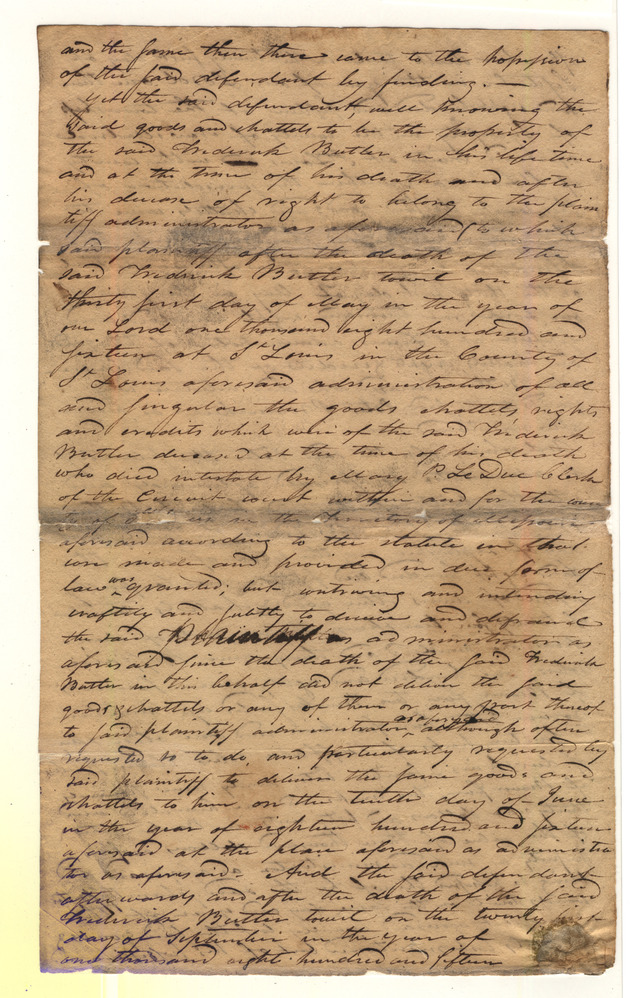 and the same then there came to the possession
of the said defendant by finding. —
Yet the said defendant, well knowing the
said goods and chattels to be the property of
the said Frederick Butler in his life time
and at the time of his death and after
his decease of right to belong to the plain
tiff administrator as aforesaid (to which
said plaintiff after the death of the
said Frederick Butler towit on the
thirty first day of May in the year of
our Lord one thousand eight hundred and
sixteen at St Louis in the County of
St Louis aforesaid administration of all
and singular the goods chattels rights
and credits which were of the said Frederick
Butler deceased at the time of his death
who died intestate by Mary P. Le Duc Clerk
of the Circuit court within and for the coun
ty of in the Territory of Missouri
aforesaid according to the statute in that
case made and provided in due form of
law was granted; but contriving and intending
craftily and subtly to deceive and defraud
the said Plaintiff as administrator as
aforesaid since the death of the said Frederick
Butler in this behalf did not deliver the said
goods & chattels or any of them or any part thereof
to said plaintiff administrator as aforesaid although often
requested so to do, and particularly requested by
said plaintiff to deliver the same goods and
chattels to him on the tenth day of June
in the year of eighteen hundred and sixteen
aforesaid at the place aforesaid as administra
tor as aforesaid. And the said defendant
afterwards and after the death of the said
Frederick Butler towit on the twenty first
day of September in the year of
one thousand eight hundred and fifteen